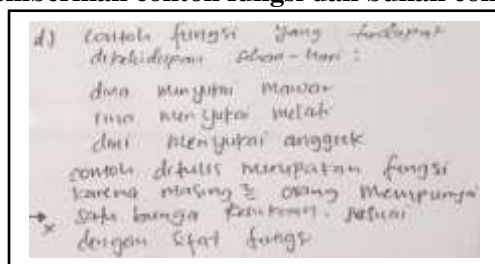 d) contoh fungsi yang terdapat
dikehidupan sehari-hari :
dina menyukai mawar
menyukai melati
menyukai anggrek
contoh ditulis merupakan fungsi
karena masing 2 orang mempunyai
satu bunga kesukaan. sesuai
dengan sifat fungsi